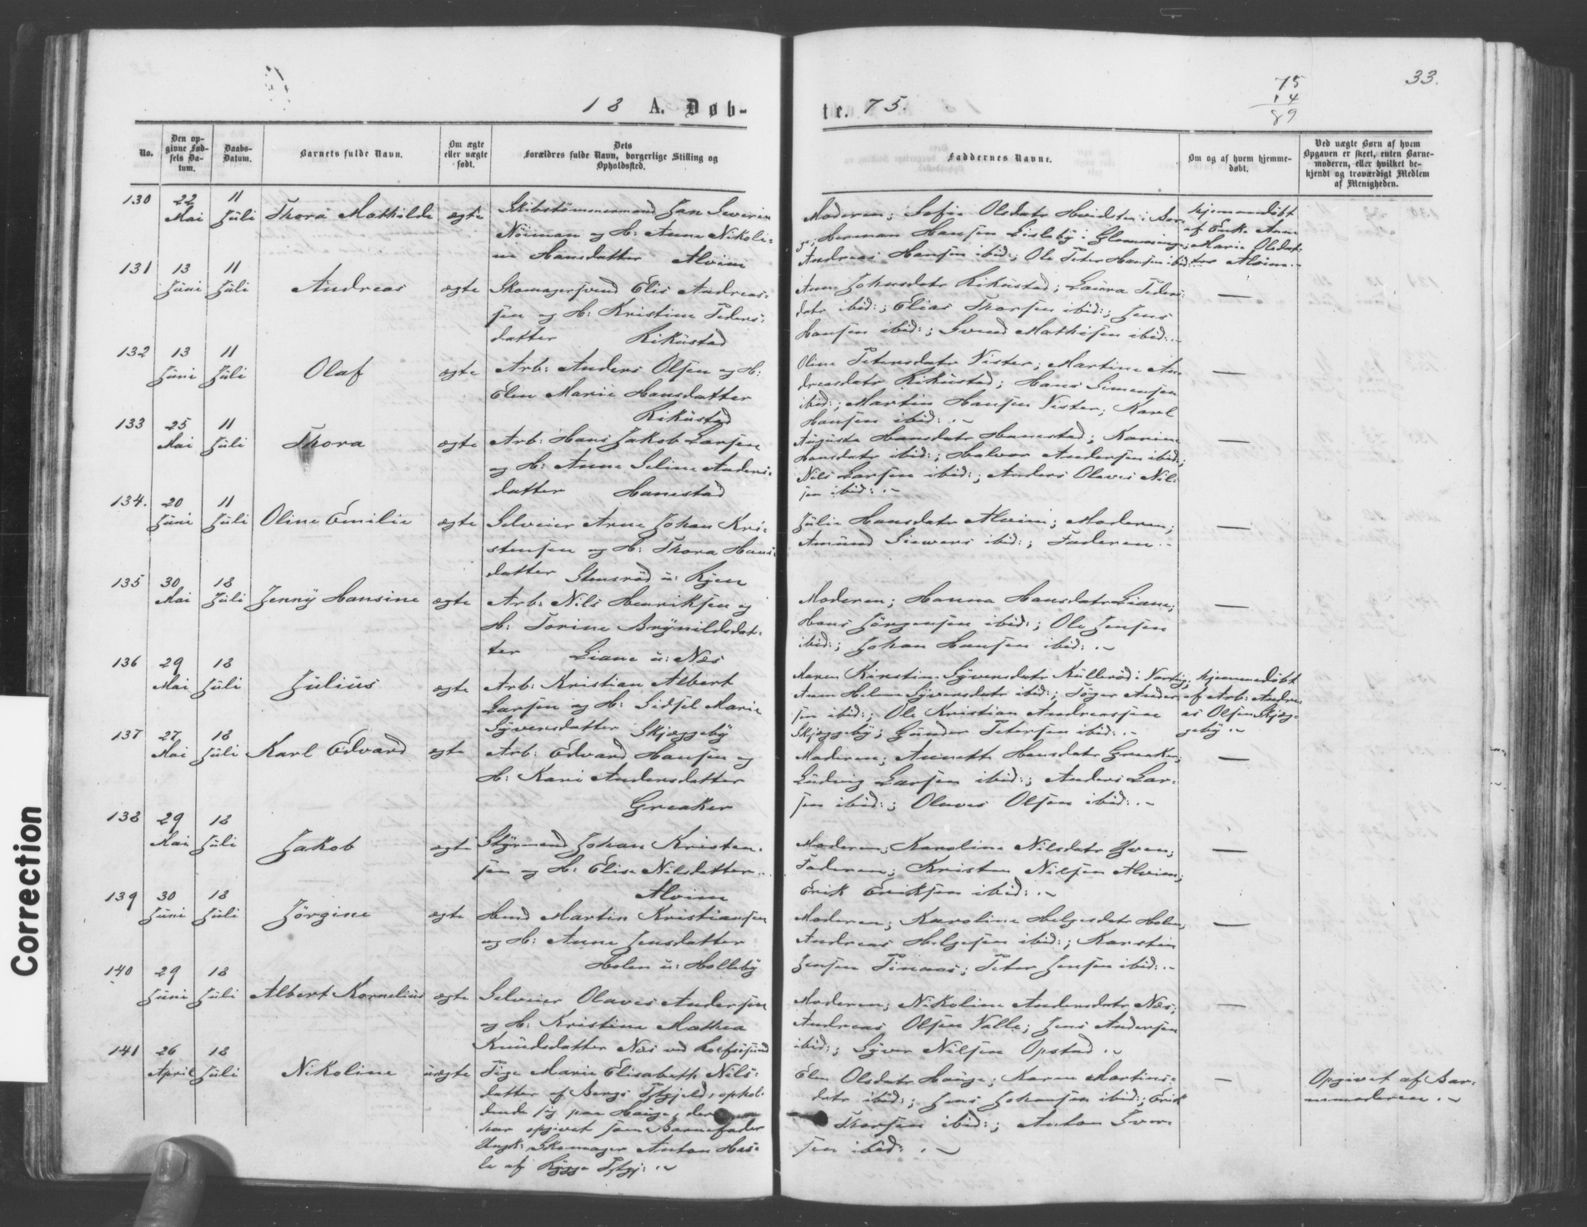 33.
75
14
89
18 A. Døb-
te. 75.
No.
Den op-
givne Fød-
sels Da-
tum.
Daabs-
Datum.
Barnets fulde Navn.
Om ægte
eller uægte
født.
Dets
Forældres fulde Navn, borgerlige Stilling og
Opholdssted.
Faddernes Navne.
Om og af hvem hjemme-
døbt.
Ved uægte Børn af hvem
Opgaven er skeet, enten Barne-
moderen, eller hvilket be-
kjendt og troværdigt Medlem
af Menigheden.
130
22 Mai
11 Juli
Thora Mathilde
ægte
Skibstømmermand Jan Severin
Neiman og H: Anne Nikoli-
ne Hansdatter Alvim
Moderen; Sofie Olsdatr Hvidsten i
Herman Hansen Lisleby i Glemminge;
Andreas Hansen ibid; Ole Peter Hansen ibid
hjemmedøbt
af Enke Anne
Marie Olsdat-
ter Alvim.
131
13 Juni
11 Juli
Andreas
ægte
Skomagersvend Elis Andreas-
sen og H: Kristine Peders-
datter Rikustad
Anne Johnsdatr Rikustad; Laura Peders-
datr ibid:; Elias Thorsen ibid:; Jens
Hansen ibid:; Svend Mathisen ibid:
—
132
13 Juni
11 Juli
Olaf
ægte
Arb: Anders Olsen og H:
Elen Marie Hansdatter
Rikustad
Oline Petersdatr Vister; Martine An-
dreasdatr Rikustad; Hans Simensen
ibid:; Martin Hansen Vister; Karl
Hansen ibid:
—
133
25 Mai
11 Juli
Thora
ægte
Arb: Hans Jakob Larsen
og H: Anne Seline Anders-
datter Hanestad
Augusta Hansdatr Hanestad; Karine
Hansdatr ibid:; Halvor Andersen ibid;
Nils Larsen ibid:; Anders Olaves Nil-
sen ibid:
—
134.
20 Juni
11 Juli
Oline Emilie
ægte
Selveier Arne Johan Kri-
stensen og H: Thora Hans-
datter Stensrød u: Kjen
Julie Hansdatr Alvim; Moderen;
Amund Siewers ibid:; Faderen
—
135
30 Mai
18 Juli
Jenny Hansine
ægte
Arb: Nils Henriksen og
H: Torine Brynildsdat-
ter Liane u: Næs
Moderen; Hanna Hansdatr Liane;
Hans Jørgensen ibid:; Ole Jensen
ibid:; Johan Hansen ibid:
—
136
29 Mai
18 Juli
Julius
ægte
Arb: Kristian Albert
Larsen og H: Sidsel Marie
Syversdatter Skjæggeby
Maren Kirstine Syversdatr Kullerød i Varteig;
Anne Helene Syversdatr ibid:; Søger Ander-
sen ibid:; Ole Kristian Andreassen
Skjæggeby; Gunder Petersen ibid:
hjemmedøbt
af Arb: Andre-
as Olsen Skjæg-
geby
137
27 Mai
18 Juli
Karl Edvard
ægte
Arb: Edvard Hansen og
H: Kari Andersdatter
Greaker
Moderen; Annette Hansdatr Greaker;
Ludvig Larsen ibid:; Anders Lar-
sen ibid:; Olaves Olsen ibid:
—
138
29 Mai
18 Juli
Jakob
ægte
Styrmand Johan Kristen-
sen og H: Elise Nilsdatter
Alvim
Moderen; Karoline Nilsdatr Yven;
Faderen; Kristen Nilsen Alvim;
Erik Eriksen ibid:
—
139
30 Juni
18 Juli
Jørgine
ægte
Hmd Martin Kristiansen
og H: Anne Jensdatter
Holen u: Holleby
Moderen; Karoline Helgesdatr Holen
Andreas Helgesen ibid:; Karsten
Jensen Tinaas; Peter Jensen ibid:
—
140
29 Juni
18 Juli
Albert Kornelius
ægte
Selveier Olaves Andersen
og H: Kristine Mathea
Knudsdatter Næs ved Rolfsøsund
Moderen; Nikoline Andersdatr Næs;
Andreas Olsen Valle; Jens Andersen
ibid:; Syver Nilsen Opstad
—
141
26 April
18 Juli
Nikoline
uægte
Pige Marie Elisabeth Nils-
datter af Bergs Prgjeld; ophol-
dende sig paa Hauge; der
har opgivet som Barnefader
Ungk: Skomager Anton Has-
le af Rygge Prgj:
Elen Olsdatr Hauge; Karen Martins-
datr ibid:; Jens Johansen ibid:; Erik
Thorsen ibid:; Anton Iver-
sen ibid:
—
Opgivet af Bar-
nemoderen
Correction